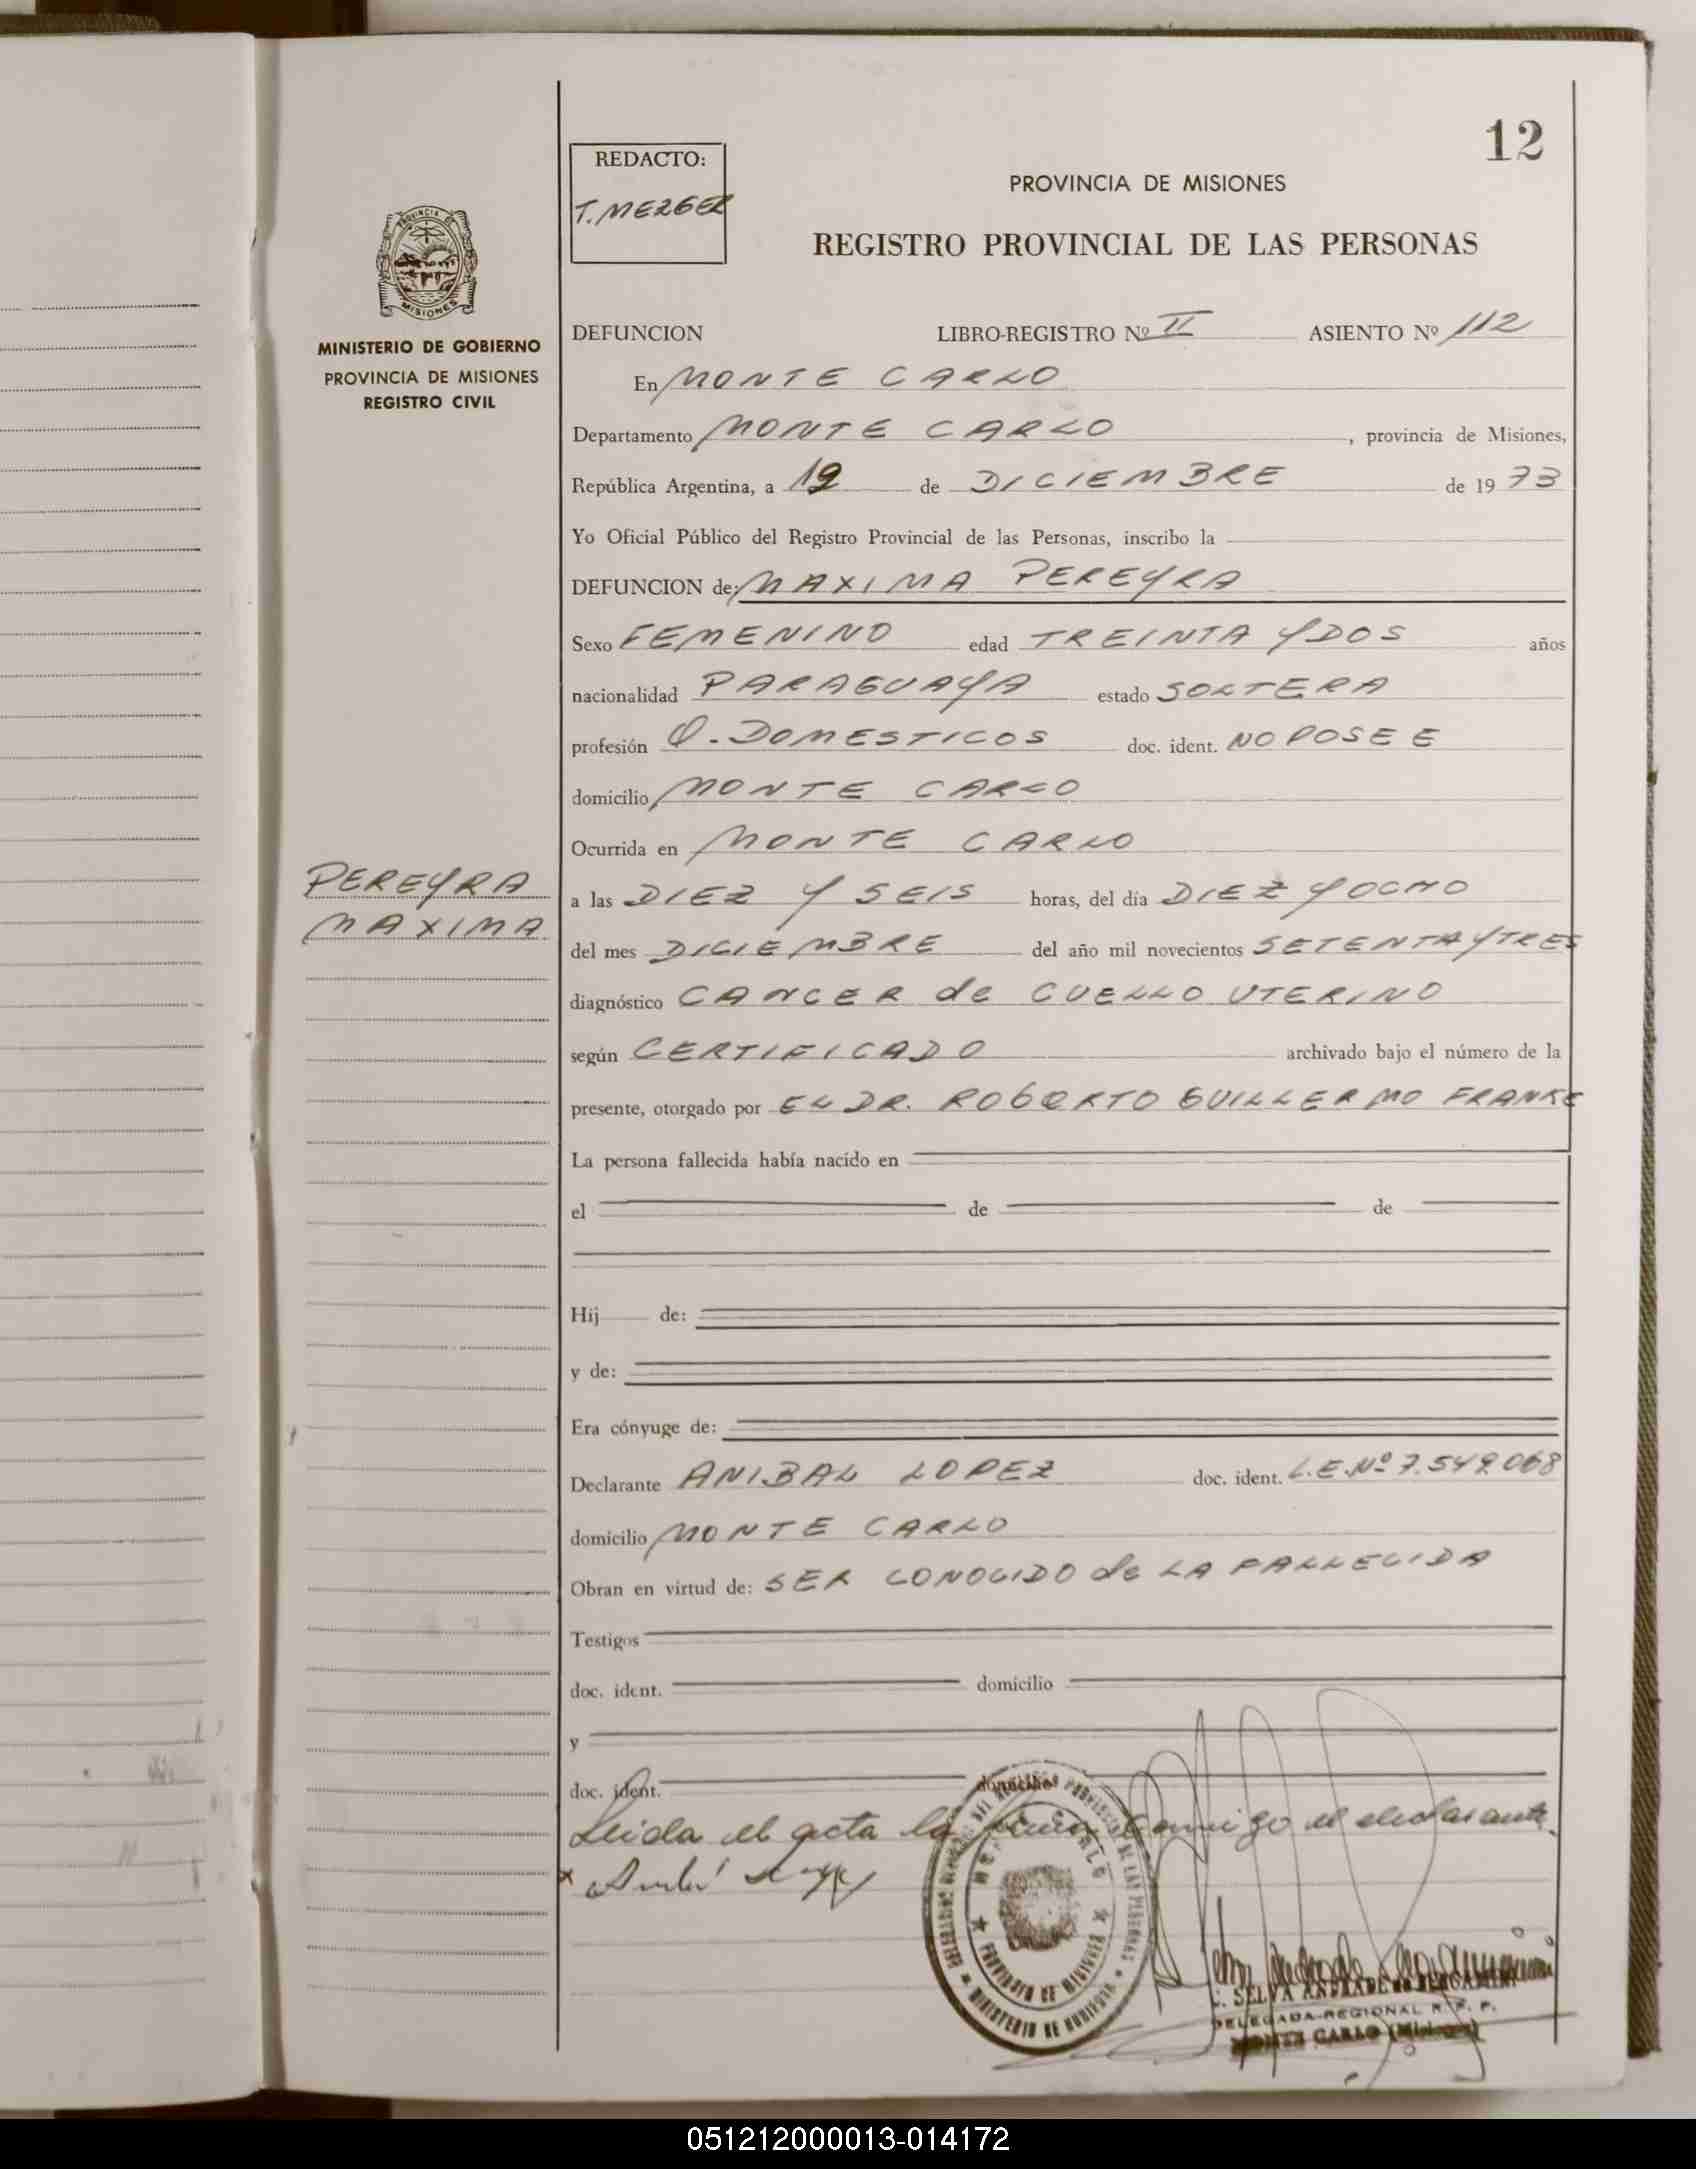 12
REDACTO:
T. MERGER
PROVINCIA DE MISIONES
REGISTRO PROVINCIAL DE LAS PERSONAS
PROVINCIA DE
MISIONES
MINISTERIO DE GOBIERNO
PROVINCIA DE MISIONES
REGISTRO CIVIL
DEFUNCION LIBRO-REGISTRO Nº II ASIENTO Nº 112
En MONTE CARLO
Departamento MONTE CARLO, provincia de Misiones,
República Argentina, a 19 de DICIEMBRE de 1973
Yo Oficial Público del Registro Provincial de las Personas, inscribo la
DEFUNCION de: MAXIMA PEREYRA
Sexo FEMENINO edad TREINTA Y DOS años
nacionalidad PARAGUAYA estado SOLTERA
profesión Q. DOMESTICOS doc. ident. NO POSEE
domicilio MONTE CARLO
Ocurrida en MONTE CARLO
PEREYRA
MAXIMA
a las DIEZ Y SEIS horas, del día DIEZ Y OCHO
del mes DICIEMBRE del año mil novecientos SETENTA Y TRES
diagnóstico CANCER de CUELLO UTERINO
según CERTIFICADO archivado bajo el número de la
presente, otorgado por EL DR. ROBERTO GUILLERMO FRANKE
La persona fallecida había nacido en
el de de
Hij de:
y de:
Era cónyuge de:
Declarante ANIBAL LOPEZ doc. ident. L.E.Nº 7.549.068
domicilio MONTE CARLO
Obran en virtud de: SER CONOCIDO de LA FALLECIDA
Testigos
doc. ident. domicilio
y
doc. ident. domicilio
Leida el acta la firma conmigo el declarante.
MONTE CARLO
PROVINCIA DE MISIONES
MINISTERIO DE GOBIERNO
C. SELVA ANDRADE de BERGAMINI
DELEGADA REGIONAL R. P. P.
MONTE CARLO (Misiones)
051212000013-014172